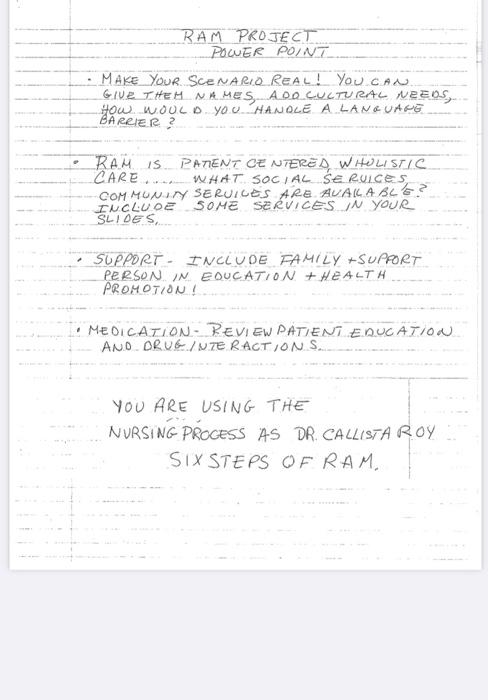 RAM PROJECT
POWER POINT
• MAKE YOUR SCENARIO REAL! YOU CAN
GIVE THEM NAMES, ADD CULTURAL NEEDS,
HOW WOULD YOU HANDLE A LANGUAGE
BARRIER?
• RAM IS PATIENT CENTERED, WHOLISTIC
CARE.... WHAT SOCIAL SERVICES,
COMMUNITY SERVICES ARE AVAILABLE?
INCLUDE SOME SERVICES IN YOUR
SLIDES.
• SUPPORT - INCLUDE FAMILY + SUPPORT
PERSON IN EDUCATION + HEALTH
PROMOTION!
• MEDICATION - REVIEW PATIENT EDUCATION
AND DRUG INTERACTIONS.
YOU ARE USING THE
NURSING PROCESS AS DR. CALLISTA ROY
SIX STEPS OF RAM.